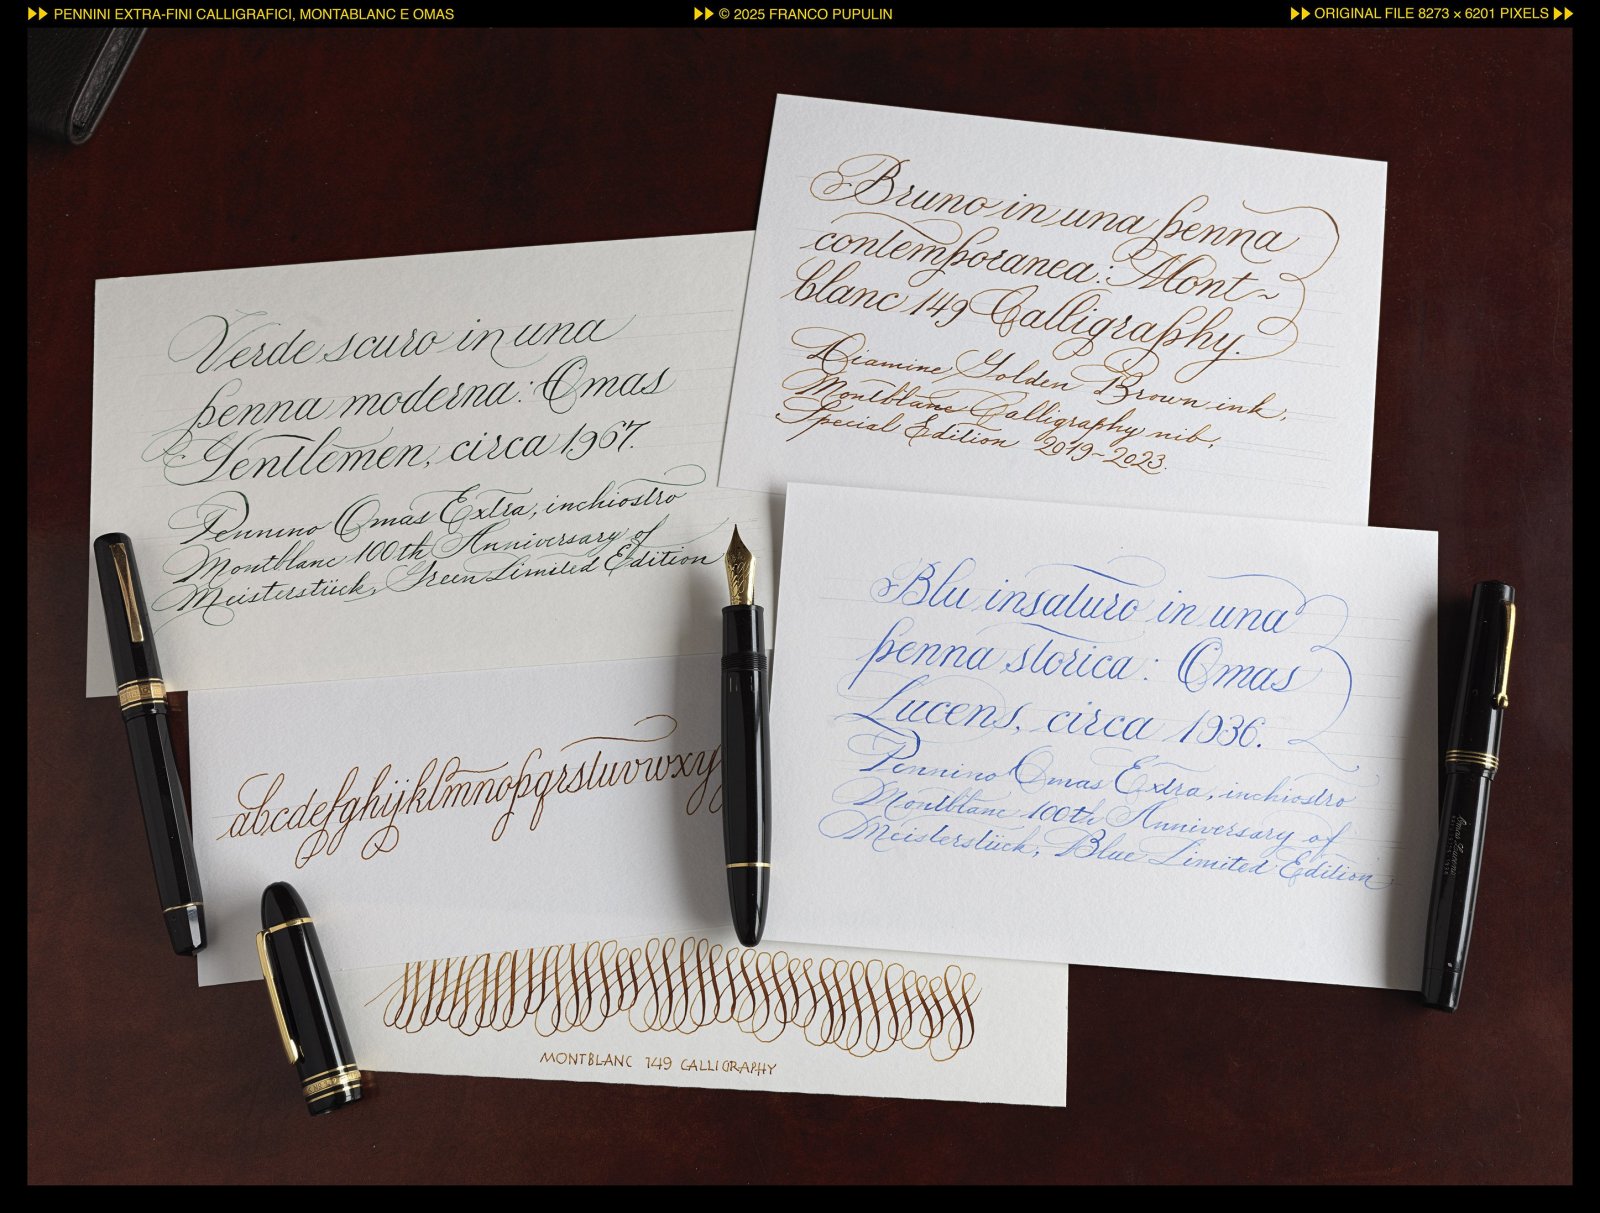 PENNINI EXTRA-FINI CALLIGRAFICI, MONTABLANC E OMAS
© 2025 FRANCO PUPULIN
ORIGINAL FILE 8273 × 6201 PIXELS
Verde scuro in una
penna moderna: Omas
Gentlemen, circa 1967.
Pennino Omas Extra, inchiostro
Montblanc 100th Anniversary of
Meisterstück, Green Limited Edition
Bruno in una penna
contemporanea: Mont~
blanc 149 Calligraphy.
Diamine Golden Brown ink,
Montblanc Calligraphy nib,
Special Edition 2019-2023.
Blu insaturo in una
penna storica: Omas
Lucens, circa 1936.
Pennino Omas Extra, inchiostro
Montblanc 100th Anniversary of
Meisterstück, Blue Limited Edition
abcdefghijklmnopqrstuvwxy
MONTBLANC 149 CALLIGRAPHY
Omas Lucens